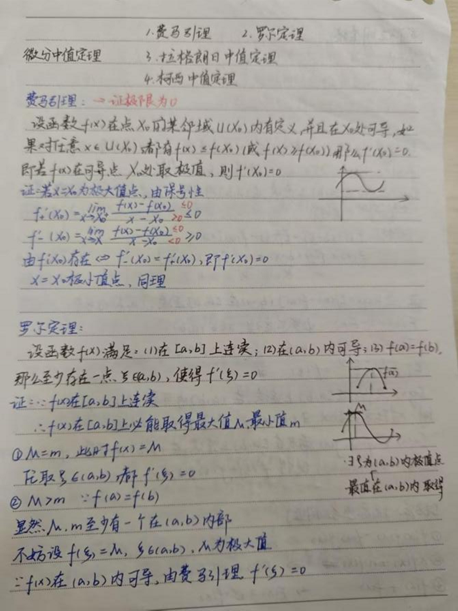 1.费马引理 2.罗尔定理
微分中值定理 3.拉格朗日中值定理
4.柯西中值定理
费马引理: →证极限为0
设函数f(x)在点X₀的某邻域U(X₀)内有定义,并且在X₀处可导,如
果对任意x∈U(X₀)都有f(x)≤f(X₀)(或f(x)≥f(X₀))那么f'(X₀)=0.
即若f(x)在可导点X₀处取极值,则f'(X₀)=0
证:若x=X₀为极大值点,由保号性
f₊'(X₀)=lim x→X₀⁺ f(x)-f(X₀) ≤0 / x-X₀ >0 ≤0
f₋'(X₀)=lim x→X₀⁻ f(x)-f(X₀) ≤0 / x-X₀ <0 ≥0
由f'(X₀)存在⇔f₋'(X₀)=f₊'(X₀),即f'(X₀)=0
x=X₀极小值点,同理
罗尔定理:
设函数f(x)满足:(1)在[a,b]上连续;(2)在(a,b)内可导;(3)f(a)=f(b),
那么至少存在一点ξ∈(a,b),使得f'(ξ)=0
证:∵f(x)在[a,b]上连续
f(x)
∴f(x)在[a,b]上必能取得最大值M,最小值m
M
①M=m,此时f(x)=M
任取ξ∈(a,b)都f'(ξ)=0
ヨξ为(a,b)内极值点
②M>m ∵f(a)=f(b)
最值在(a,b)内取得
显然,M,m至少有一个在(a,b)内部
不妨设f(ξ)=M,ξ∈(a,b),M为极大值
∵f(x)在(a,b)内可导,由费马引理f'(ξ)=0